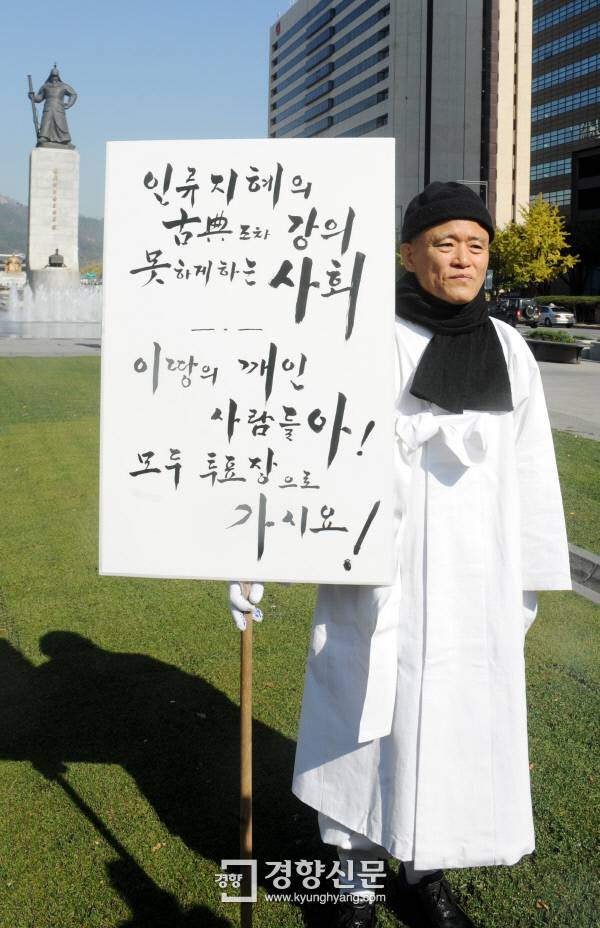 인류지혜의
古典조차 강의
못하게하는 사회
이땅의 깨인
사람들아!
모두 투표장으로
가시요!
경향 경향신문
www.kyunghyang.com